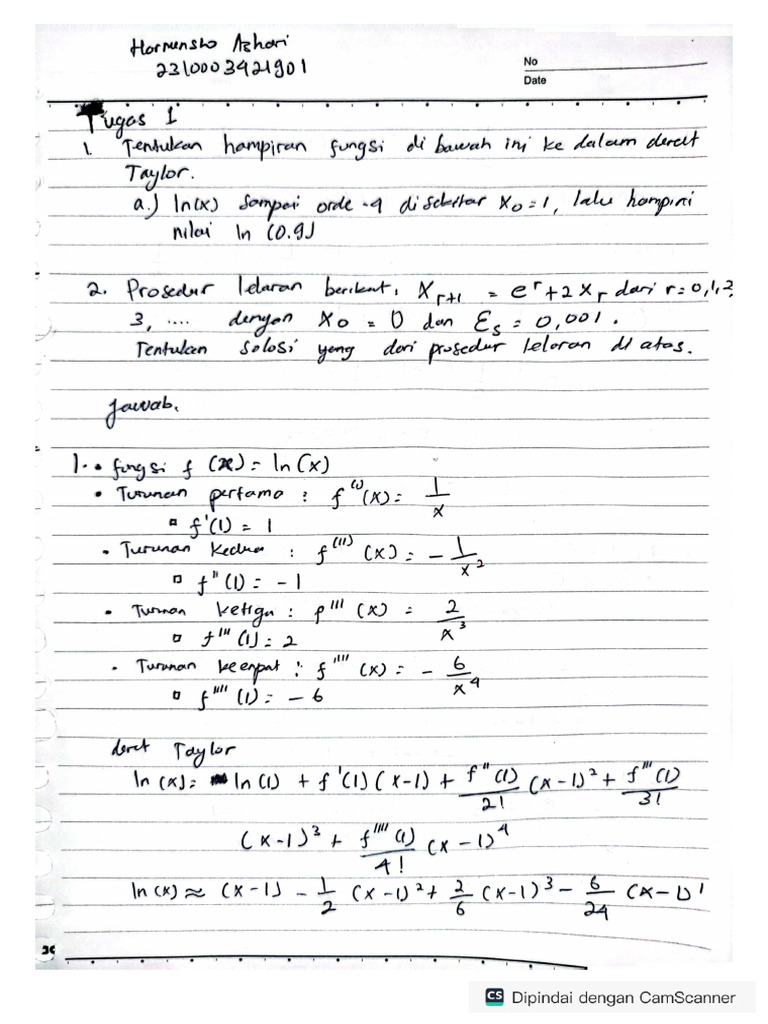 Hormansho Azhari
2310003421901
No
Date
Tugas 1
1. Tentukan hampiran fungsi di bawah ini ke dalam deret
Taylor.
a.) ln(x) sampai orde -4 di sekitar x₀=1, lalu hampiri
nilai ln (0.9)
2. Prosedur lelaran berikut, X_{r+1} = e^r + 2X_r dari r=0,1,2
3, .... dengan X₀ = 0 dan Es = 0,001.
Tentukan solosi yang dari prosedur leloran di atas.
Jawab,
1. • fungsi f (x) = ln(x)
• Turunan pertama : f^(I)(x) = 1/x
▫ f'(1) = 1
• Turunan kedua : f^(II) (x) = - 1/x²
▫ f"(1) = -1
• Turunan ketiga : f''' (x) = 2/x³
▫ f'''(1) = 2
• Turunan keempat : f'''' (x) = - 6/x⁴
▫ f''''(1) = -6
deret Taylor
ln (x) = ln(1) + f'(1) (x-1) + f"(1)/2! (x-1)² + f'''(1)/3!
(x-1)³ + f''''(1)/4! (x-1)⁴
ln(x) ≈ (x-1) - 1/2 (x-1)² + 2/6 (x-1)³ - 6/24 (x-1)
CS Dipindai dengan CamScanner